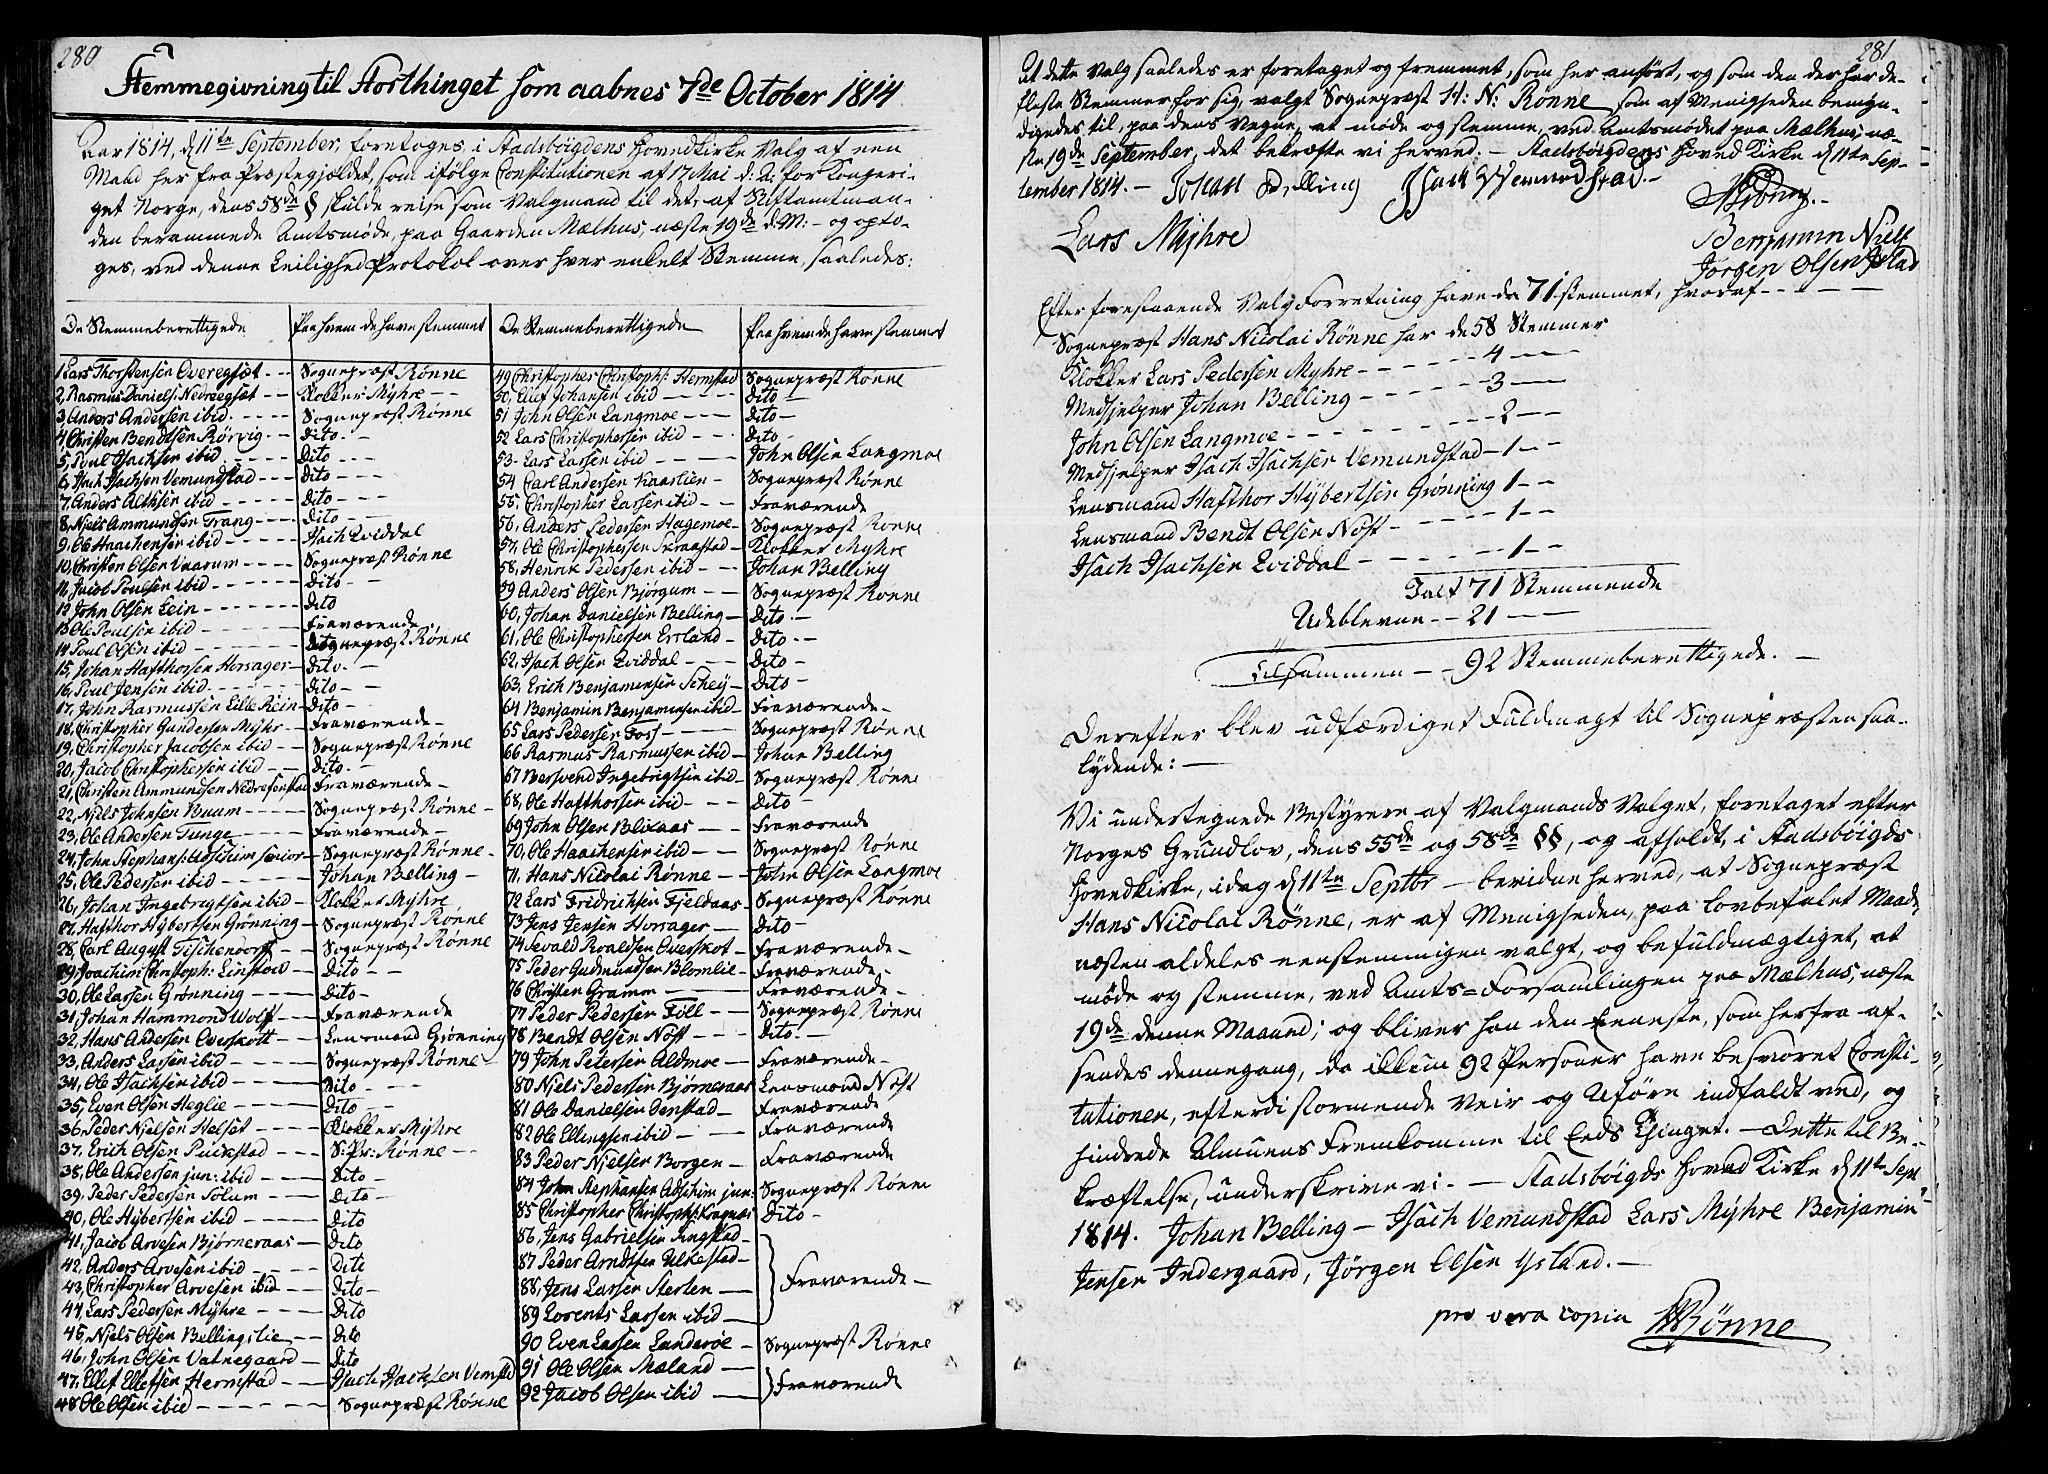 280
Stemmegivning til Storthinget som aabnes 7de October 1814
Aar 1814, d 11te September, foretoges, i Stadsbøigdens Hovedkirke Valg af een
Mand her fra Præstegjældet, som ifølge Constitutionen af 17 Mai d: A: for Kongeri-
get Norge, dens 58de § skulde reise som Valgmand til det, af Stiftamtman-
den berammede Amtsmøde, paa Gaarden Mælhus, næste 19de d: M: - og opto-
ges, ved denne Leilighed Protokol over hver enkelt Stemme, saaledes:
De Stemmeberettigede | Paa hvem de have stemmet
1, Lars Thorstensen Overegsæt - - | Sognepræst Rønne
2, Rasmus Daniels: Nedreegsæt - - | Klokker Myhre - -
3, Anders Andersen ibid. - - - | Sognepræst Rønne
4, Christen Bendtsen Rørvig - - | Dito. - -
5, Poul Isachsen ibid - - - | Dito - - -
6, Isach Isachsen Vemundstad - - - | Dito - - -
7, Anders Althsen ibid - - - | Dito - - -
8, Niels Ammundsen Trang - - - - | Dito - - -
9, Ole Haachensen ibid - - - - | Isach Qviddal
10, Christen Olsen Vaarum - - - | Sognepræst Rønne
11, Jacob Poulsen ibid - - - - | Dito - -
12 John Olsen Lein - - - - - | Dito
13 Ole Poulsen ibid - - - - - | Fraværende
14 Poul Olsen ibid - - - - - | Sognepræst Rønne
15, Johan Hafthorsen Horsager - - - | Dito. - -
16, Poul Jensen ibid. - - - - - | Dito - -
17, John Rasmussen Lille Rein - - | Dito - -
18, Christopher Gundersen Myhr - - | Fraværende -
19, Christopher Jacobsen ibid - - | Sognepræst Rønne
20, Jacob Christophersen ibid - - | Dito. -
21, Christen Ammundsen Nedrefenstad | Fraværende -
22, Niels Johnsen Buum - - - - | Sognepræst Rønne -
23, Ole Andersen Tunge - - - - | Fraværende -
24, John Stephans: Adschim senior - | Sognepræst Rønne -
25, Ole Pedersen ibid - - - - | Johan Belling -
26, Johan Ingebrigtsen ibid - - - | Klokker Myhre
27, Hafthor Hybertsen Grønning - | Sognepræst Rønne
28, Carl August Tischendorff - | Sognepræst Rønne
29, Joachim Christoph: Linstow - | Dito - -
30, Ole Larsen Grønning - - - | Dito -
31, Johan Hammond Wolff - - | Fraværende
32, Hans Andersen Overskott - - | Lensmand Grønning
33, Anders Larsen ibid - - - | Sognepræst Rønne -
34, Ole Isachsen ibid - - - - | Dito - - -
35, Even Olsen Heglie - - - | Dito - -
36, Peder Nielsen Helset - - | Klokker Myhre
37, Erich Olsen Puckstad - - | S: Pr: Rønne - -
38, Ole Andersen jun: ibid - - | Dito -
39, Peder Pedersen Solum - - - | Dito -
40, Ole Hybertsen ibid - - - | Dito
41, Jacob Arvesen Bjørneraas - - | Dito
42, Anders Arvesen ibid - - - | Dito
43, Christopher Arvesen ibid - - - | Dito -
44, Lars Pedersen Myhre - - - - | Dito
45, Niels Olsen Bellingslie - - - | Dito
46, John Olsen Vatnegaard - - | Dito
47, Ellef Ellefsen Hermstad - - - | Isach Isachsen Vemstad
48 Ole Olsen ibid - - - - - - | Sognepræst Rønne
De Stemmeberettigede | Paa hvem de have stemmet
49 Christopher Christoph: Hermstad | Sognepræst Rønne
50, Ellef Johansen ibid - - - - | Dito -
51 John Olsen Langmoe - - - | Dito -
52 Lars Christophersen ibid - - - | Dito -
53 - Lars Larsen ibid - - - - | John Olsen Langmoe
54 Carl Andersen Kaarlien - - | Sognepræst Rønne
55, Christopher Larsen ibid - - | Fraværende
56, Anders Pedersen Hagemoe - | Sognepræst Rønne
57, Ole Christophersen Skraastad - | Klokker Myhre
58, Henrik Pedersen ibid - - - | Johan Belling
59 Anders Olsen Bjørgum - - | Sognepræst Rønne
60, Johan Danielsen Belling - - | Dito. -
61, Ole Christophersen Errland - | Dito - -
62, Isach Olsen Qviddal - - - | Dito -
63, Erich Benjaminsen Schey - | Dito -
64 Benjamin Benjaminsen ibid - | Fraværende -
65 Lars Pedersen Foss - - - | Sognepræst Rønne
66 Rasmus Rasmussen ibid - - | Johan Belling
67 Bersvend Ingebrigtsen ibid - | Sognepræst Rønne
68, Ole Hafthorsen ibid - - - | Dito -
69 John Olsen Blixaas - - - | Fraværende
70, Ole Haachensen ibid - - - | Sognepræst Rønne
71, Hans Nicolai Rønne - - | John Olsen Langmoe
72 Lars Fridrichsen Fjeldaas - | Sognepræst Rønne
73 Jens Jensen Horsager - - | Dito -
74 Sevald Roaldsen Overskot - | Fraværende -
75 Peder Gudmundsen Blomlie - | Fraværende -
76 Christen Gramm - - - | Fraværende -
77 Peder Pedersen Foll - - | Sognepræst Rønne
78 Bendt Olsen Nøst - - - | Dito. -
79 John Petersen Aldmoe - - | Fraværende -
80 Niels Pedersen Bjørneraas | Lensmand Nøst
81 Ole Danielsen Oenstad - - | Fraværende
82 Ole Ellingsen ibid - - | Fraværende
83 Peder Nielsen Borgen - - | Fraværende
84 John Stephansen Adschim jun: | Sognepræst Rønne
85 Christopher Christoph: Kragnæs | Dito -
86, Jens Gabrielsen Ringstad -
87 Peder Arndtsen Ulkestad -
88, Jens Larsen Sterten - | Fraværende -
89 Lorents Larsen ibid -
90 Even Larsen Landeröe | Sognepræst Rønne
91 Ole Olsen Mæland -
92 Jacob Olsen ibid - | Fraværende
281
At dette Valg saaledes er foretaget og fremmet, som her anført, og som den der har de
fleste Stemmer for sig, valgt Sognepræst H: N: Rønne, som af Menigheden bemyn-
digedes til, paa dens Vegne, at møde og stemme, ved Amtsmødet paa Mælhus, næ-
ste 19de September, det bekræfte vi herved. - Stadsbøigdens Hoved Kirke d 11te Sep-
tember 1814. - Johan Belling Isach Vemundstad. -
HNRønne. -
Lars Myhre
Benjamin Niels
Jørgen Olsen Ystad
Efter forestaaende Valg Forretning have da 71 stemmet, hvoraf - - - - -
Sognepræst Hans Nicolai Rønne har de 58 Stemmer
Klokker Lars Pedersen Myhre - - - - - 4 - -
Medhjelper Johan Belling - - - - - 3 - -
John Olsen Langmoe - - - - - - - 2 - -
Medhjelper Isach Isachsen Vemundstad - 1 - -
Lensmand Hafthor Hybertsen Grønning 1 - -
Lensmand Bendt Olsen Nøst - - - - - 1 - -
Isach Isachsen Qviddal - - - - - - 1 - -
Ialt 71 Stemmende
Udeblevne - - 21 - -
Tilsammen - - 92 Stemmeberettigede. -
Derefter blev udfærdiget Fuldmagt til Sognepræsten saa-
lydende: -
Vi undertegnede Bestyrere af Valgmands Valget, foretaget efter
Norges Grundlov, dens 55de og 58de §§, og afholdt, i Stadsbøigds
Hovedkirke, idag d 11te Septbr - bevidne herved, at Sognepræst
Hans Nicolai Rønne, er af Menigheden, paa lovbefalet Maade,
næsten aldeles eenstemmigen valgt, og befuldmægtiget, at
møde og stemme, ved Amts=Forsamlingen paa Mælhus, næste
19de denne Maaned; og bliver han den Eeneste, som herfra af-
sendes dennegang, da ikkun 92 Personer have besvoret Consti-
tutionen, efterdi stormende Veir og Uføre indfaldt ved, og
hindrede Almuens Fremkomme til Eeds Thinget. - Dette til Be-
kræftelse, underskrive vi. - Stadsbøigds Hoved Kirke d 11te Sept
1814. Johan Belling - Isach Vemundstad Lars Myhre Benjamin
Jensen Indergaard, Jørgen Olsen Ystand. -
pro vera copia HNRønne